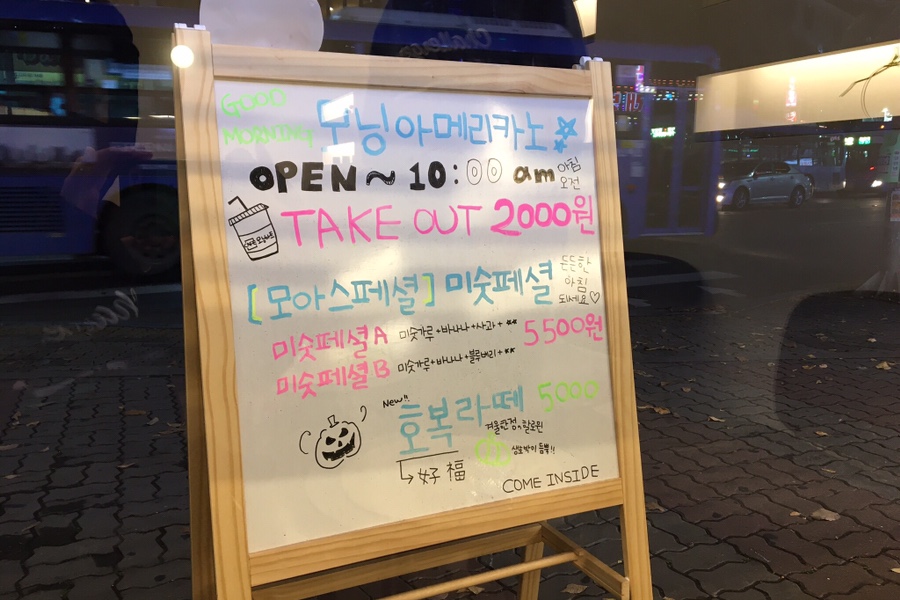 GOOD
MORNING
모닝 아메리카노
OPEN ~ 10:00 am 아침 오전
TAKE OUT 2000원
[모아스페셜] 미숫페셜
든든한
아침
되세요♡
미숫페셜 A 미숫가루+바나나+사과+** 5500원
미숫페셜 B 미숫가루+바나나+블루베리+**
New!!
호복라떼 5000
겨울한정, 할로윈
단호박이 듬뿍!!
↳好福
COME INSIDE